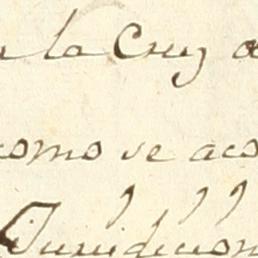 la Cruz
como se aco
Juridicion